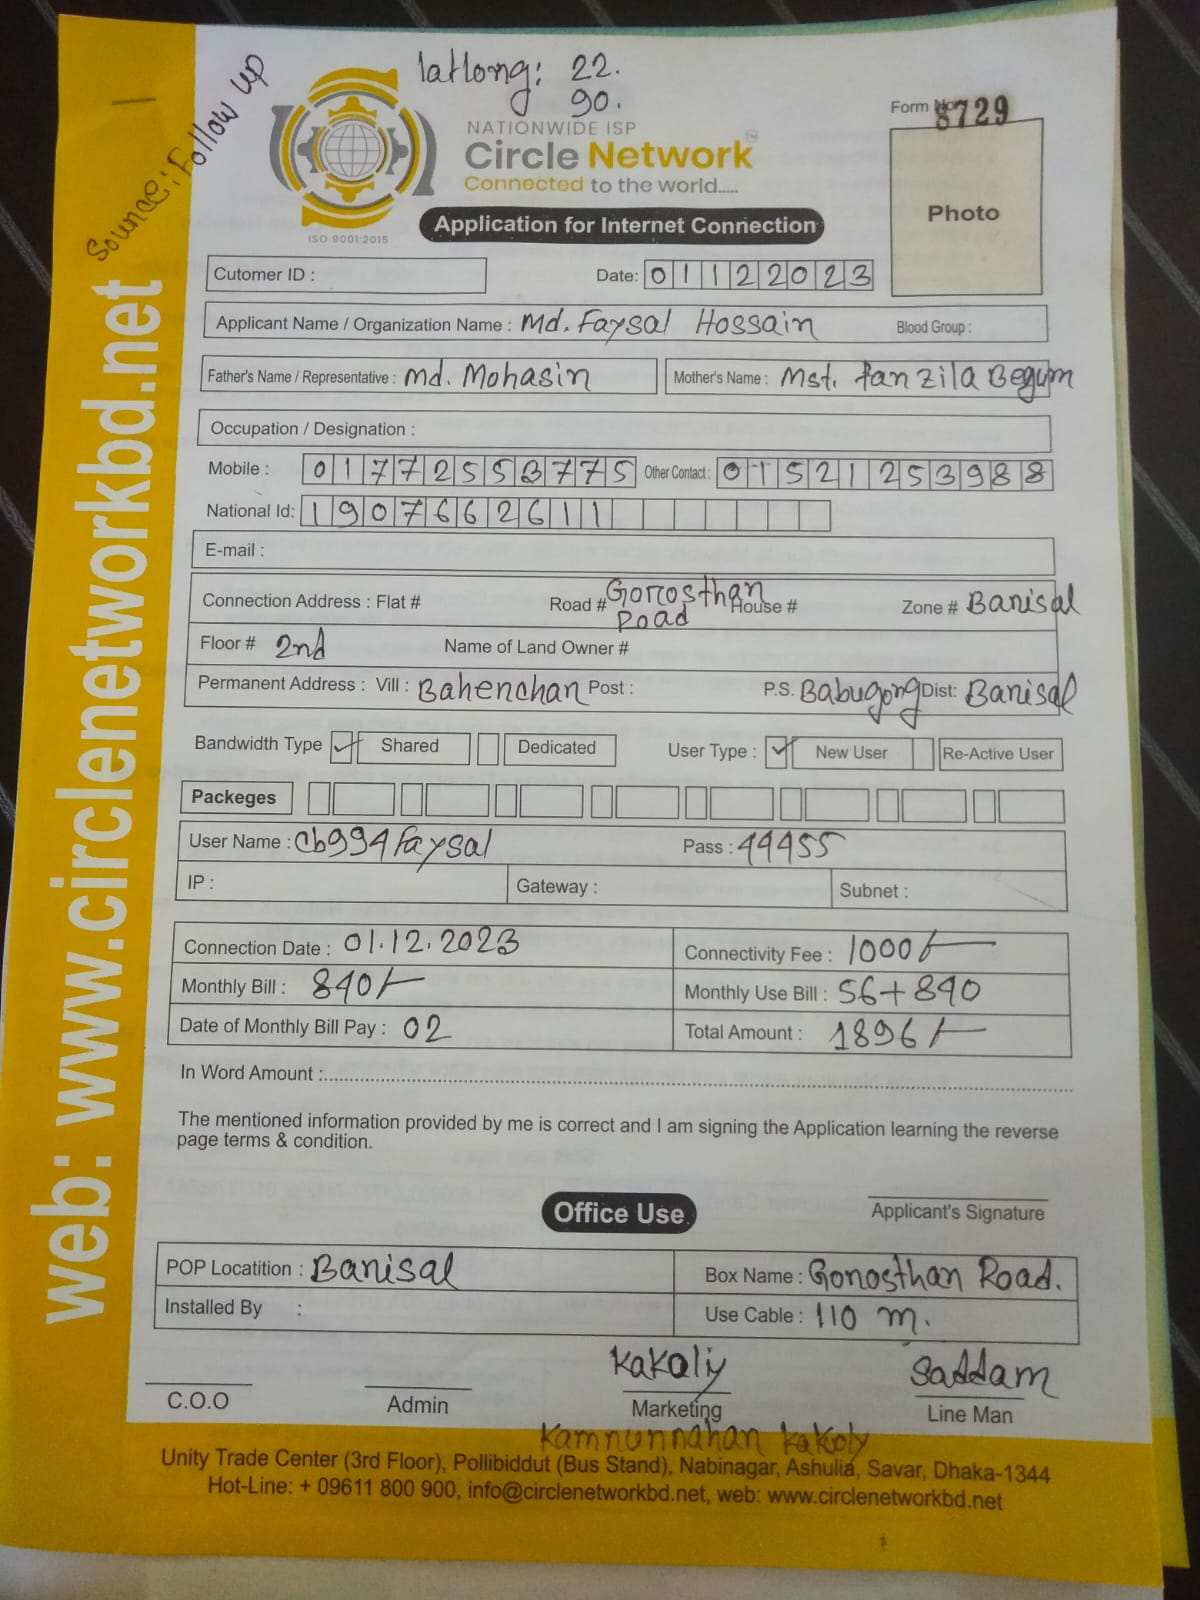 Source: Follow up
latlong: 22.
90.
Form No. 8729
NATIONWIDE ISP
Circle Network™
Connected to the world.....
ISO 9001:2015
Application for Internet Connection
Photo
Cutomer ID :
Date: 01122023
Applicant Name / Organization Name : Md. Faysal Hossain Blood Group :
Father's Name / Representative : Md. Mohasin Mother's Name : Mst. Tanzila Begum
Occupation / Designation :
Mobile : 01772553775 Other Contact : 01521253988
National Id: 1907662611
E-mail :
Connection Address : Flat # Road # Gorosthan Road House # Zone # Barisal
Floor # 2nd Name of Land Owner #
Permanent Address : Vill : Baherchar Post : P.S. Babugong Dist: Barisal
Bandwidth Type ✓ Shared Dedicated User Type : ✓ New User Re-Active User
Packeges
User Name : cb994faysal Pass : 44455
IP : Gateway : Subnet :
Connection Date : 01.12.2023 Connectivity Fee : 1000/-
Monthly Bill : 840/- Monthly Use Bill : 56+840
Date of Monthly Bill Pay : 02 Total Amount : 1896/-
In Word Amount :
The mentioned information provided by me is correct and I am signing the Application learning the reverse
page terms & condition.
Applicant's Signature
Office Use
POP Locatition : Barisal Box Name : Gorosthan Road.
Installed By : Use Cable : 110 m.
Kakoliy Saddam
C.O.O Admin Marketing Line Man
Kamrunnahar Kakoly
Unity Trade Center (3rd Floor), Pollibiddut (Bus Stand), Nabinagar, Ashulia, Savar, Dhaka-1344
Hot-Line: + 09611 800 900, info@circlenetworkbd.net, web: www.circlenetworkbd.net
web: www.circlenetworkbd.net